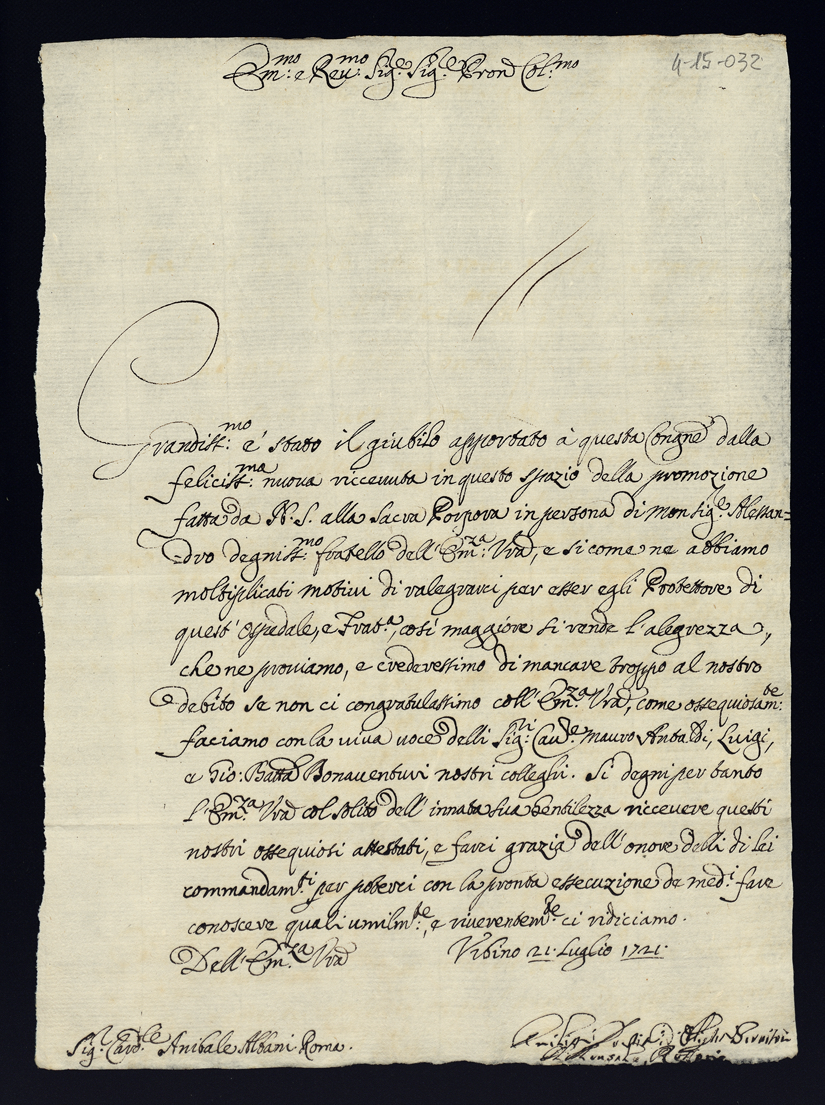 Em:mo e Reu:mo Sig:re Sig:re Pron Col:mo
4-15-032
Grandiss:mo e' stato il giubilo apportato à questa Congne dalla
feliciss:ma nuova riceuuta in questo spazio della promozione
fatta da N. S. alla Sacra Porpora in persona di Monsig:re Alessan=
dro degniss:mo fratello dell' Em:za Vra, e si come ne abbiamo
moltiplicati motiui di ralegrarci per esser egli Protettore di
quest' Ospedale, e Frat:a, cosi maggiore si rende l'alegrezza,
che ne prouiamo, e crederessimo di mancare troppo al nostro
debito se non ci congratulassimo coll' Em:za Vra, come ossequiosam:te
faciamo con la uiua uoce delli Sig:ri Cau:re Mauro Antaldi, Luigi,
e Gio: Batta Bonauenturi nostri colleghi. Si degni per tanto
l'Em:za Vra col solito dell' innata sua Gentilezza riceuere questi
nostri ossequiosi attestati, e farci grazia dell' onore delli di lei
commandam:ti per poterci con la pronta essecuzione de med:i fare
conoscere quali umilm:te, e riuerentem:te ci ridiciamo.
Dell' Em:za Vra Vrbino 21: Luglio 1721.
Sig:r Card:le Anibale Albani Roma.